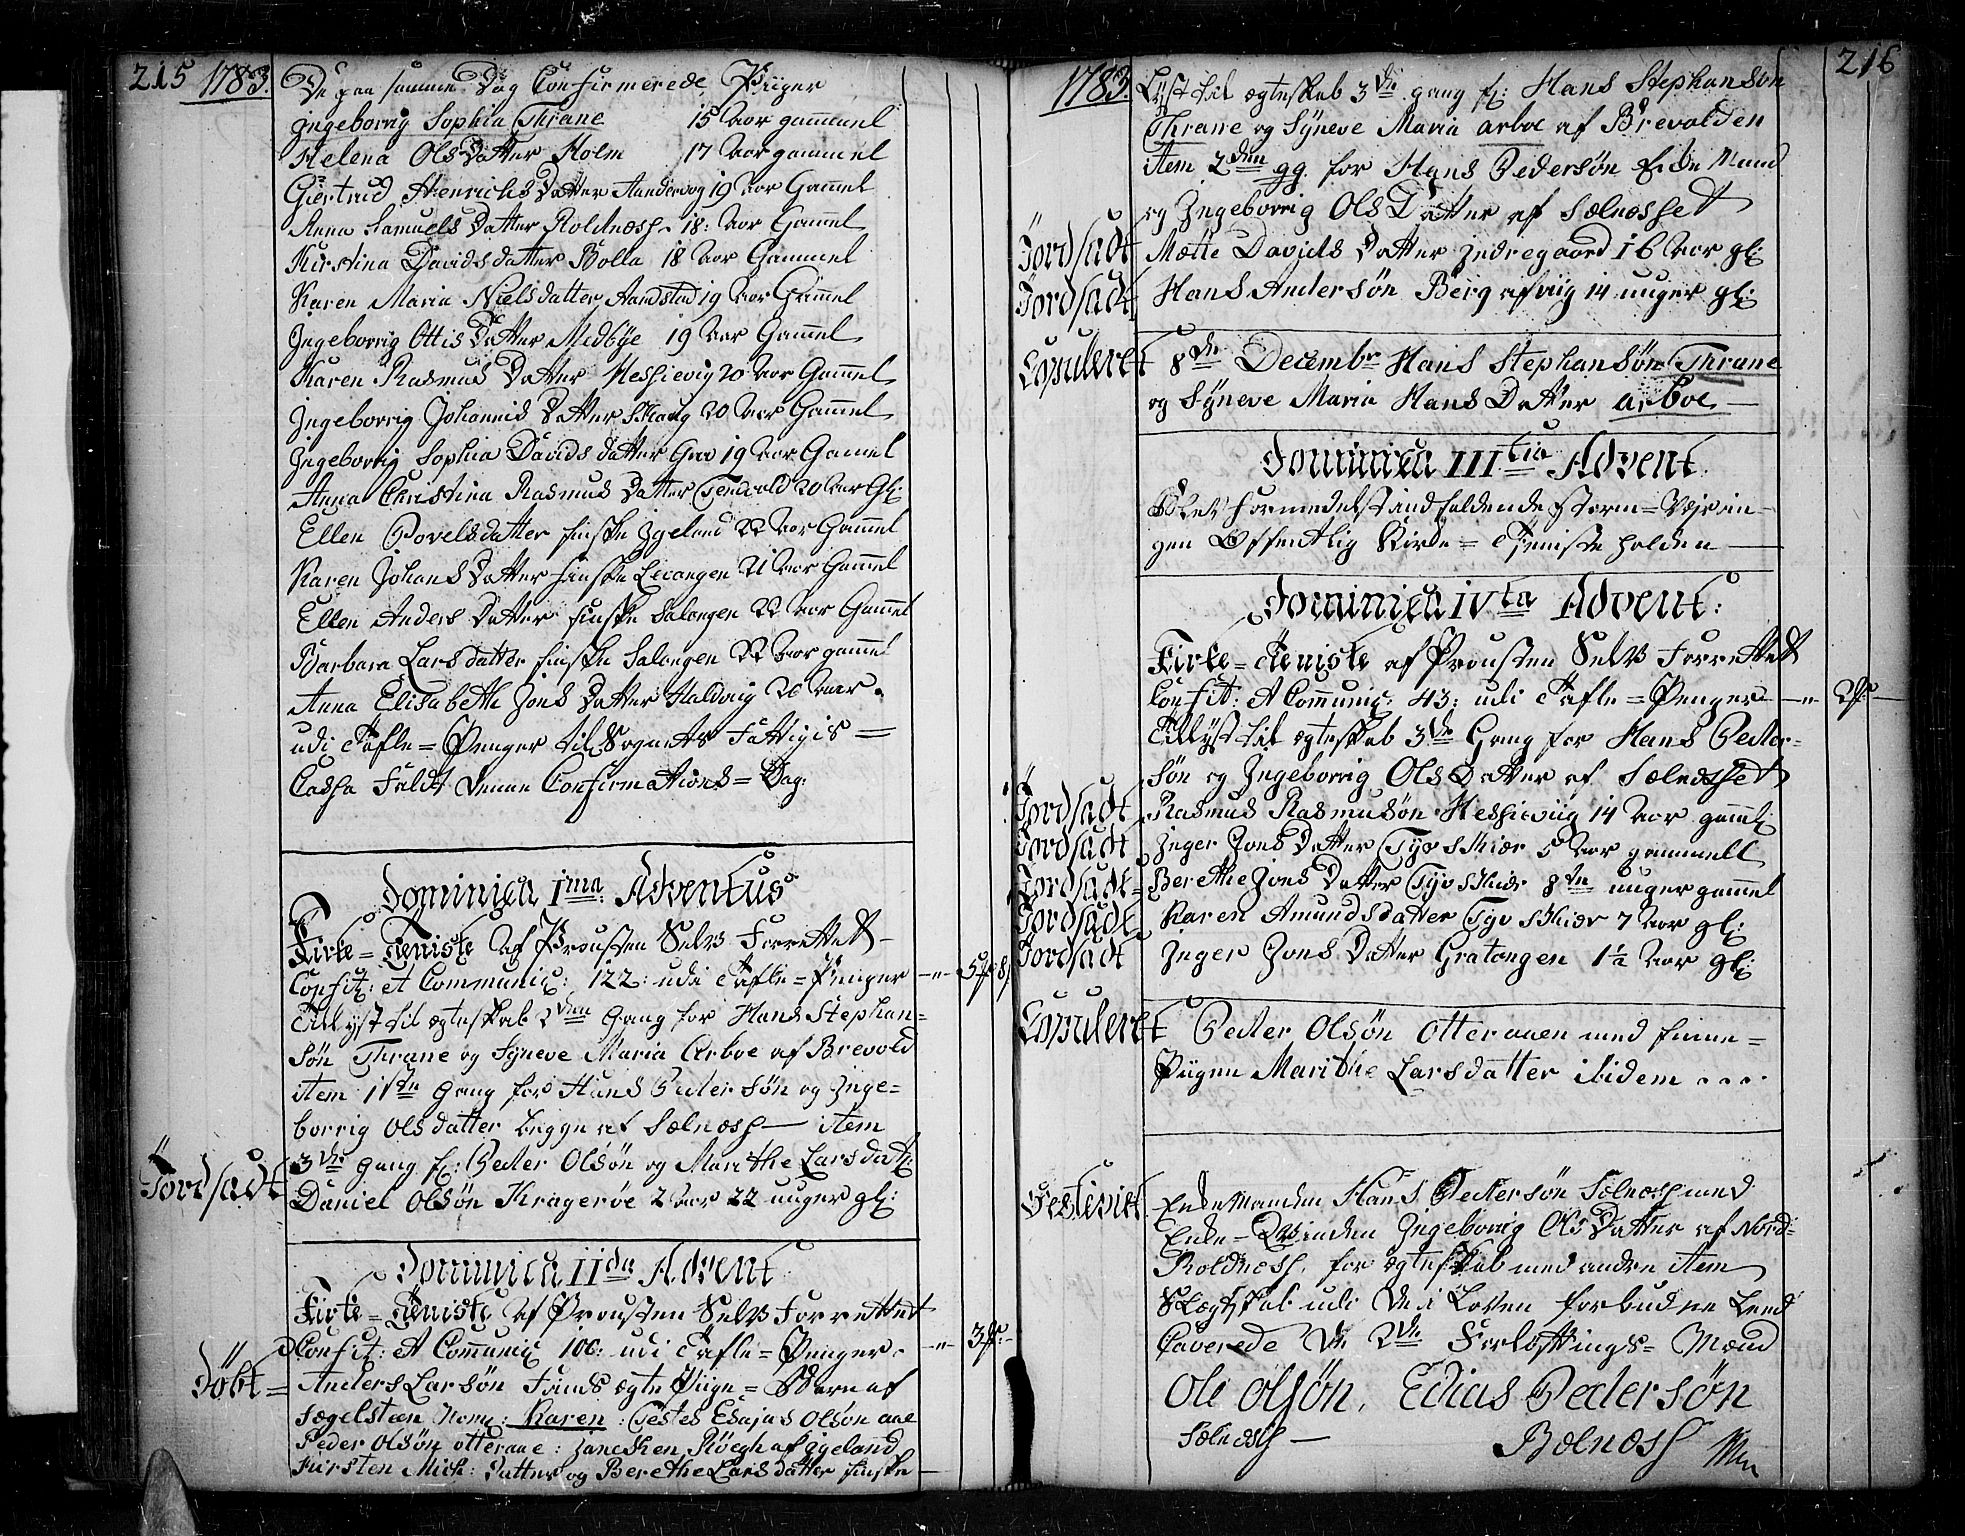 215 1783.
De paa samme Dag Confirmerede Piiger
Ingeborrig Sophia Thrane 15 Aar gammel
Helena Ols Datter Holm 17 Aar gammel
Giertrud Henrichs Datter 19 Aar Gamel
Anna Samuels Datter Roldnæss 18: Aar Gamel
Kirstina Davids datter Bolla 18 Aar Gammel
Karen Maria Niels datter Aandstad 19 Aar Gamel
Ingeborrig Ottis Datter Medbye 19 Aar Gamel
Karen Rasmus Datter Hessievig 20 Aar Gamel
Ingeborrig Johannis Datter Skaug 20 Aar Gamel
Ingeborrig Sophia Davids datter Grav 19 Aar Gamel
Anna Christina Rasmus Datter 20 Aar Gl:
Ellen Povelsdatter finske Igeland 22 Aar Gamel
Karen Johans Datter finske Levangen 21 Aar Gamel
Ellen Anders Datter finske Salangen 22 Aar Gamel
Barbara Lars datter finske Salangen 22 Aar gamel
Anna Elisabeth Jons Datter Haldvig 20 Aar.
udi Tafle = Penger til Sognets Fattigis =
Cassa faldt denne Confirmations = Dag:
Dominica Ima: Adventus
Kirke = Tieniste af Prousten Selv Forrettet
Confit: et Communic: 122: udi Tafle = Penger 5 8
Tillyst til ægteskab 2den Gang for Hans Stephan=
søn Thrane og Syneve Maria Arboe af Brevold
item 1ste Gang for Hans Peder søn og Inge=
borrig Ols datter begge af Sælnæss item
3die gang f: Peder Olsøn og Marithe Lars datt:
Jordsadt Daniel Olsøn Kragerøe 2 Aar 22 uuger gl:
Dominica IIda Advent
Kirke = Tieniste af Prousten Selv Forrettet
Confit: et Communic 100: udi Tafle = Penger 3
Döbt = Anders Larsøn Finds ægte Pige = Barn af
Sægelsteen Nom: Karen: Testes Esajas Olsøn
Peder Olsøn otteraae: af Igeland
Kirsten Mich: Datter og Berethe Lars datter finske
1783. 216
Lyst til ægteskab 3die gang f: Hans Stephansøn
Thrane og Syneve Maria arboe af Brevolden
item 2den gg. for Hans Pedersøn Enke Mand
og Ingeborrig Ols Datter af Sælnæsset
Jordsadt Mætte Davids Datter Indregaard 16 Aar gl:
Jordsadt Hans Andersøn Berg 14 uuger gl:
Copuleret 8de Decembr Hans Stephansøn Thrane
og Syneve Maria Hans Datter arboe
Dominica IIItia Advent
Blev formedelst indfaldende Storm = Vejr in=
gen Offentlig Kirke = Tjeniste holden
Dominica IVta Advent:
Kirke = Tieniste af Prousten Selv Forrettet
Confit: et Communic: 43: udi Tafle = Penger 2
Tillyst til ægteskab 3die Gang for Hans Peder=
søn og Ingeborrig Ols Datter af Sælnæsset
Jordsadt Rasmus Rasmusøn Hessieviig 14 Aar gamel:
Jordsadt Inger Jons Datter Tyvskiær 5 Aar gammell
Jordsadt= Berethe Jons Datter Tyvskiær 8te uuger gammel
Jordsadt Karen Amunds datter Tyvskiær 7 Aar gl:
Jordsadt Inger Jons Datter Gratangen 1½ Aar gl:
Copuleret Peder Olsøn Otteraaen med finne=
Piigen Marithe Larsdatter ibidem ....
Enkemanden Hans Pedersøn Sælnæss med
Enke = Qvinden Ingeborrig Ols Datter af Nord=
Roldnæss, for ægteskab med andre item
Slægtskab udi de i Loven forbudne Leed
Caverede de 2de Forløftnings= Mænd
Ole Olsøn, Elias Pedersøn
Sælnæss Bolnæss